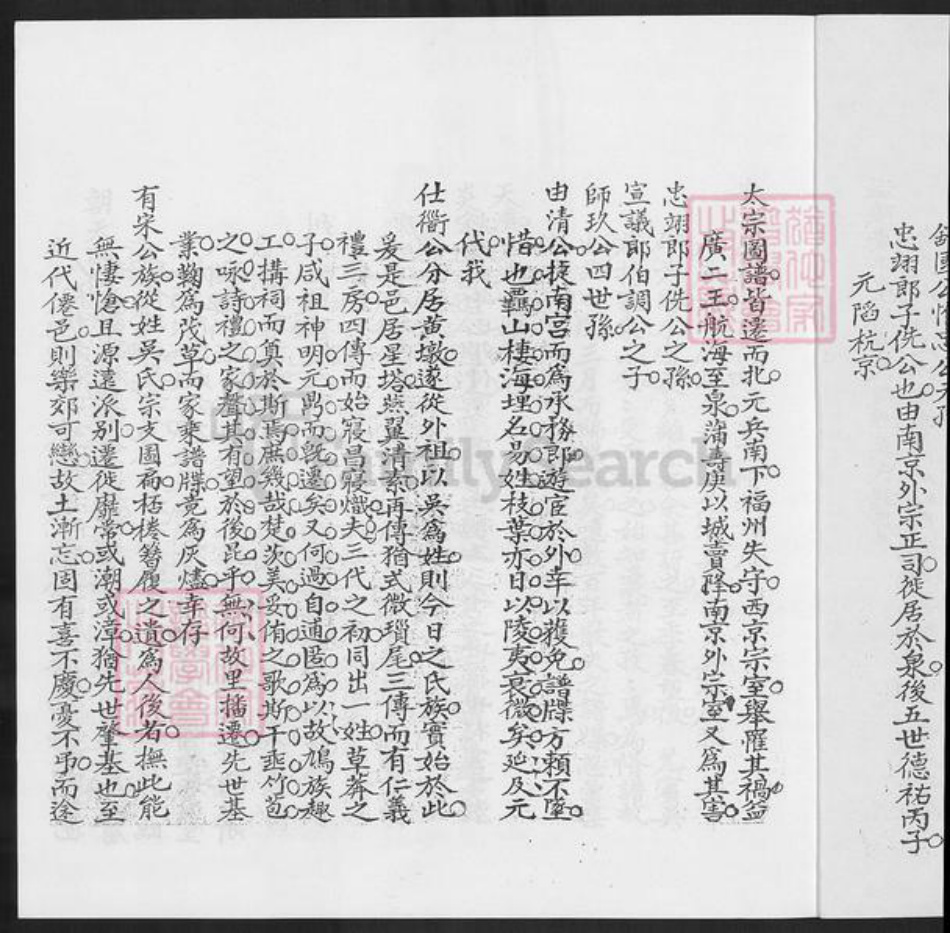 忠翊郎子侁公也由南京外宗正司徙居於泉後五世德祐丙子
元䧟杭京
太宗圖譜皆遷而北元兵南下福州失守西京宗室舉罹其禍益
廣二王航海至泉蒲壽庚以城賣降南京外宗室又為其害
忠翊郎子侁公之孫
宣議郎伯調公之子
師玖公四世孫
由清公捷南宮而為承務郎遊宦於外幸以獲免譜牒方賴不墜
惜也羈山棲海埋名易姓枝葉亦日以陵夷衰微矣延及元
代我
仕衢公分居黃墩遂從外祖以吳為姓則今日之氏族實始於此
爰是邑居星塔燕翼清素再傳猶式微瑣尾三傳而有仁義
禮三房四傳而始寢昌寢熾夫三代之初同出一姓草莽之
子咸祖神明元鼎而旣遷矣又何過自逋匿為以故鳩族趣
工搆祠而奠於斯焉庶幾哉楚茨美妥侑之歌斯干亟竹苞
之咏詩禮之家聲其有望於後昆乎無何故里播遷先世基
業鞠為茂草而家乘譜牒竟為灰燼幸存
有宋公族從姓吳氏宗支圖扁桮棬簪履之遺為人後者撫此能
無悽愴且源遠派別遷徙靡常或潮或漳猶先世肇基也至
近代僊邑則樂郊可戀故土漸忘固有喜不慶憂不弔而途
FamilySearch